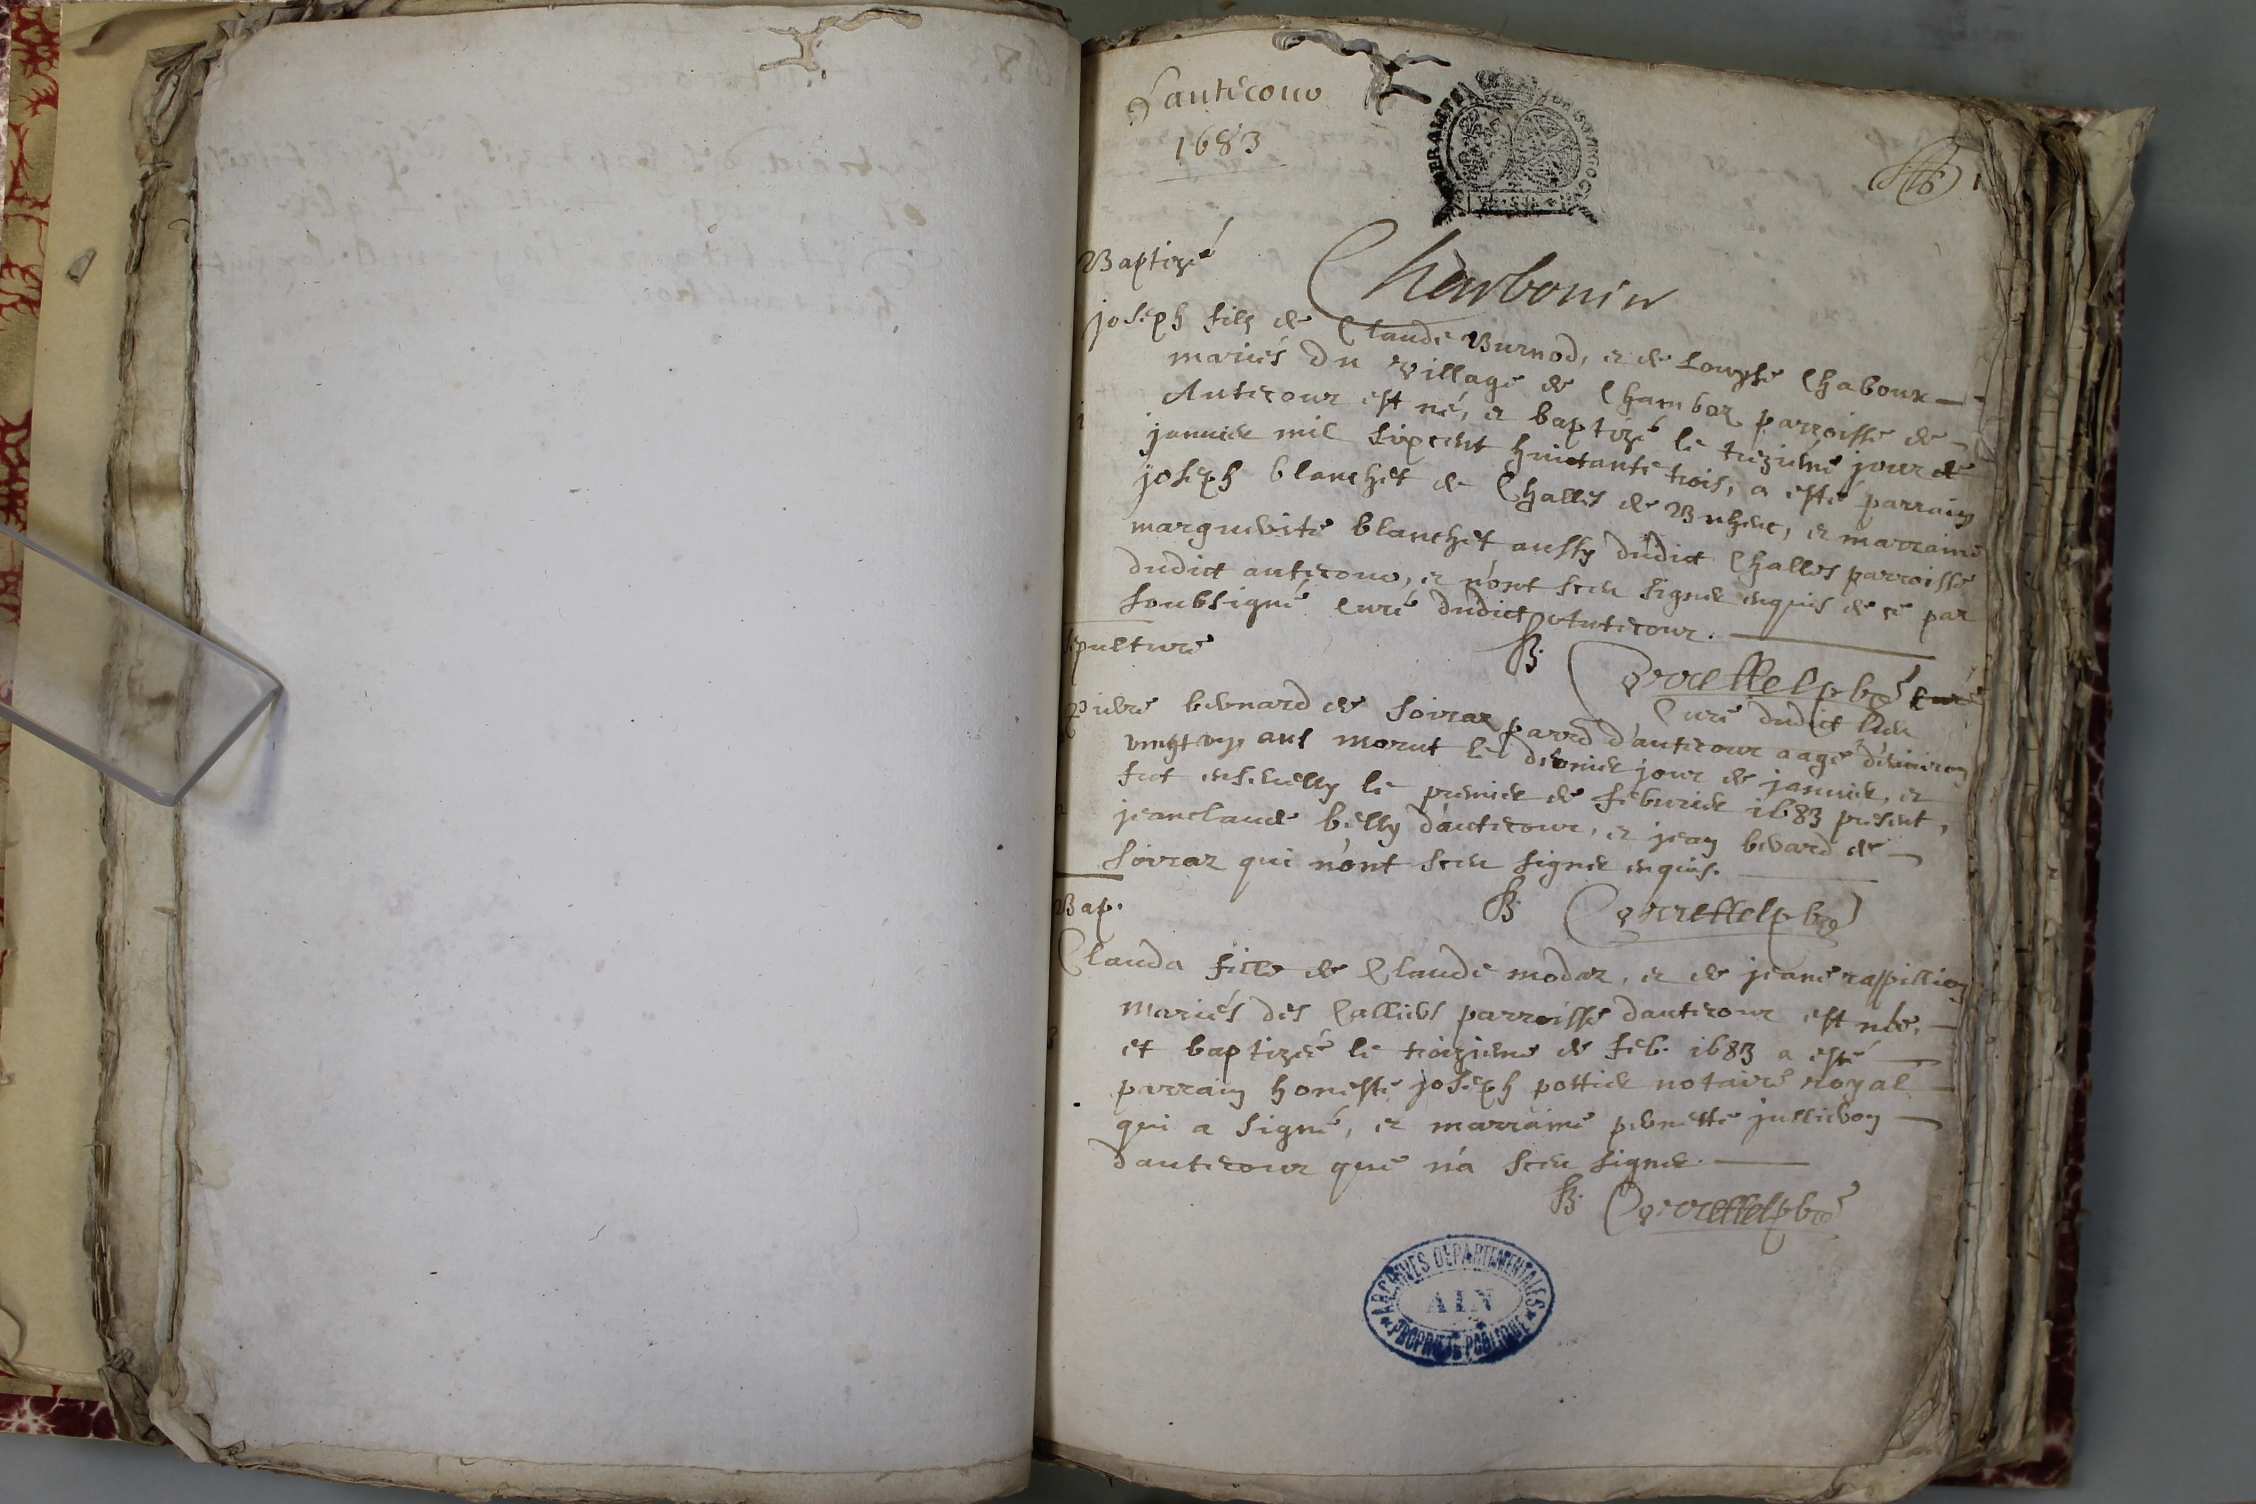 Dantecour
1683
1
Charbonin
Baptizé
joseph fils de Claude Burnod, et de Louyse Chaboux
mariés du village de Chambor parroisse de
Antecour est né, et baptizé le treizieme jour de
1
janvier mil sixcent huictante trois, a esté parrain
joseph blanchet de Challes de Buhenc, et marraine
marguerite blanchet aussy dudict Challes parroisse
dudict antecour, et n'ont sceu signer enquis de ce par
soubsigné Curé dudict Antecour.
B. pbre curé
Curé dudict lieu
sepulture
Pierre bernard de soirraz parr. d'antecour aagé d'environ
vingt ans morut le dernier jour de janvier, et
fut ensevelly le premier de feburier 1683 present,
2
jeanclaude belly d'antecour, et jean berard de
soirraz qui n'ont sceu signer enquis.
B. pbre
Bap.
Clauda fille de Claude modaz, et de jeane raspillion
mariés des Calliers parroisse dantecour est née,
3
et baptizeé le troizieme de feb. 1683 a esté
parrain honeste joseph pottier notaire royal
qui a signé, et marraine pernette jullieron
dantecour que n'a sceu signer.
B. pbre
ARCHIVES DEPARTEMENTALES
AIN
PROPRIETE PUBLIQUE